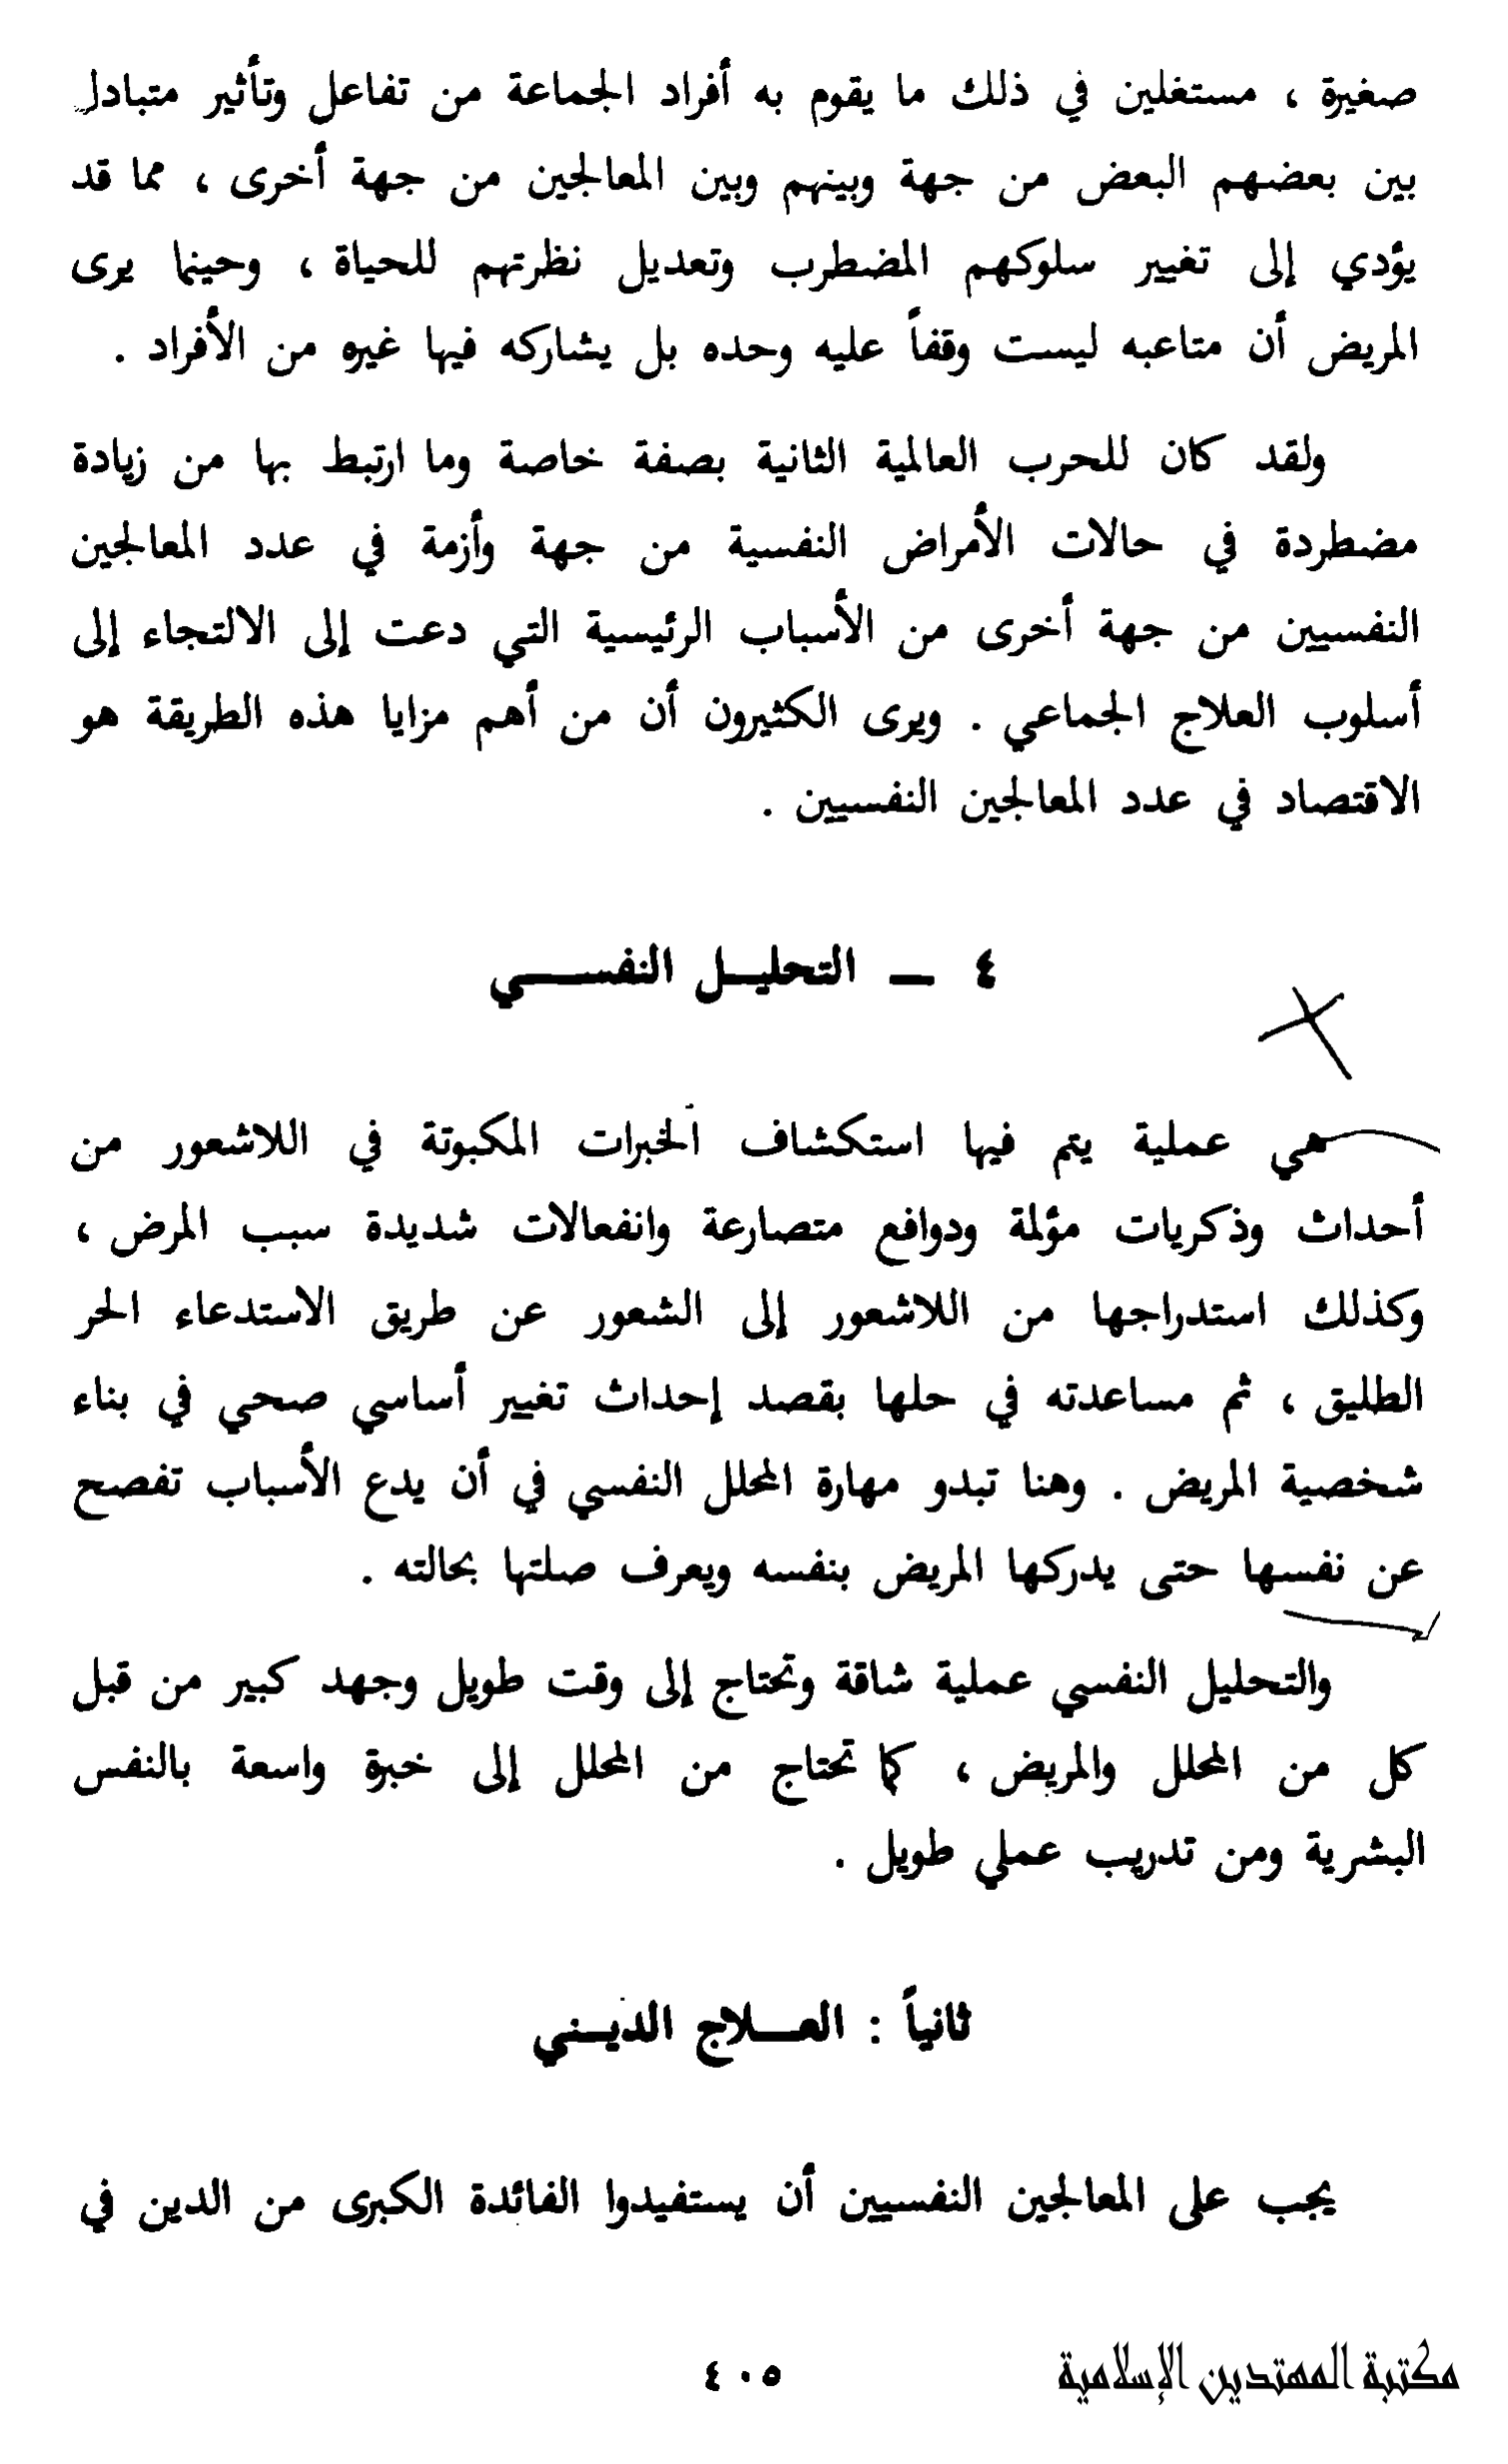 صغيرة ، مستغلين في ذلك ما يقوم به أفراد الجماعة من تفاعل وتأثير متبادل
بين بعضهم البعض من جهة وبينهم وبين المعالجين من جهة أخرى ، مما قد
يؤدي إلى تغيير سلوكهم المضطرب وتعديل نظرتهم للحياة ، وحينما يرى
المريض أن متاعبه ليست وقفاً عليه وحده بل يشاركه فيها غيره من الأفراد .
ولقد كان للحرب العالمية الثانية بصفة خاصة وما ارتبط بها من زيادة
مضطردة في حالات الأمراض النفسية من جهة وأزمة في عدد المعالجين
النفسيين من جهة أخرى من الأسباب الرئيسية التي دعت إلى الالتجاء إلى
أسلوب العلاج الجماعي . ويرى الكثيرون أن من أهم مزايا هذه الطريقة هو
الاقتصاد في عدد المعالجين النفسيين .
٤ – التحليل النفسي
هي عملية يتم فيها استكشاف الخبرات المكبوتة في اللاشعور من
أحداث وذكريات مؤلمة ودوافع متصارعة وانفعالات شديدة سبب المرض ،
وكذلك استدراجها من اللاشعور إلى الشعور عن طريق الاستدعاء الحر
الطليق ، ثم مساعدته في حلها بقصد إحداث تغيير أساسي صحي في بناء
شخصية المريض . وهنا تبدو مهارة المحلل النفسي في أن يدع الأسباب تفصح
عن نفسها حتى يدركها المريض بنفسه ويعرف صلتها بحالته .
والتحليل النفسي عملية شاقة وتحتاج إلى وقت طويل وجهد كبير من قبل
كل من المحلل والمريض ، كما تحتاج من المحلل إلى خبرة واسعة بالنفس
البشرية ومن تدريب عملي طويل .
ثانياً : العلاج الديني
يجب على المعالجين النفسيين أن يستفيدوا الفائدة الكبرى من الدين في
٤٠٥
مكتبة المهتدين الإسلامية